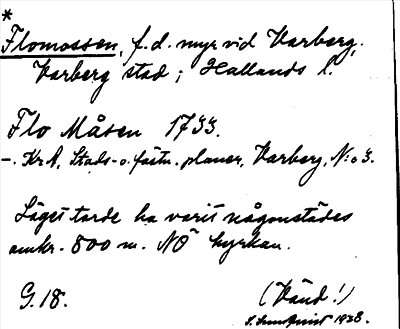 *
Flomossen, f.d. myr vid Varberg,
Varberg stad; Hallands l.
Flo Måsen 1733.
–. KrA, Stads- o. fästn. planer, Varberg, N:o 3.
Läget torde ha varit någonstädes
omkr. 800 m. NÖ kyrkan.
G. 18. (Vänd!)
S. Lundquist 1938.